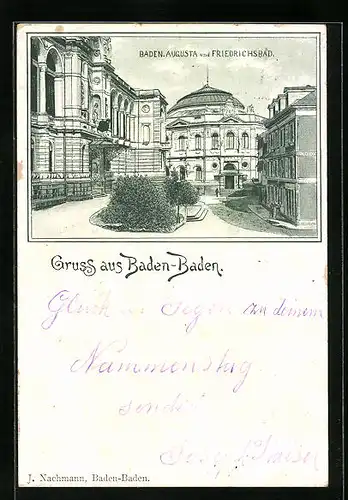 BADEN. AUGUSTA und FRIEDRICHSBAD.
Gruss aus Baden-Baden.
Glück u Segen zu deinem
Nammenstag
sendet
Joseph
J. Nachmann, Baden-Baden.